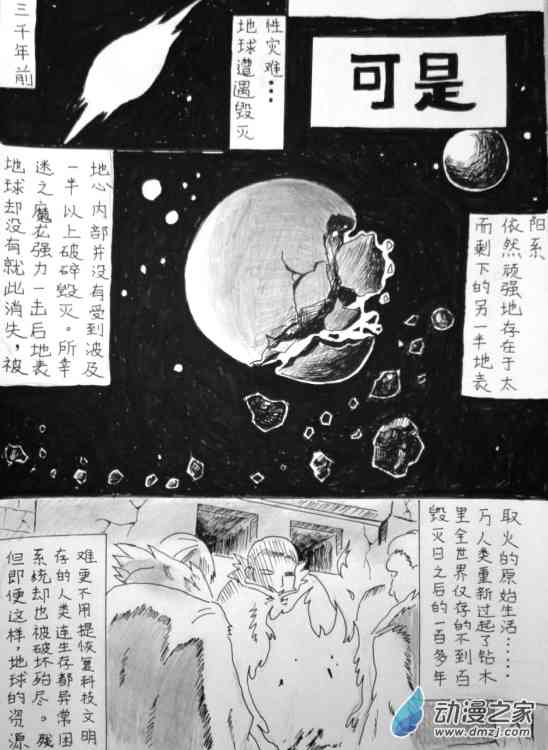 三千年前
地球遭遇毁灭
性灾难…
可是
地球却没有就此消失，被
迷之魔龙强力一击后地表
一半以上破碎毁灭。所幸
地心内部并没有受到波及
而剩下的另一半地表
依然顽强地存在于太
阳系
但即便这样，地球的资源
系统却也被破坏殆尽。残
存的人类连生存都异常困
难更不用提恢复科技文明
毁灭日之后的一百多年
里全世界仅存的不到百
万人类重新过起了钻木
取火的原始生活……
动漫之家
www.dmzj.com